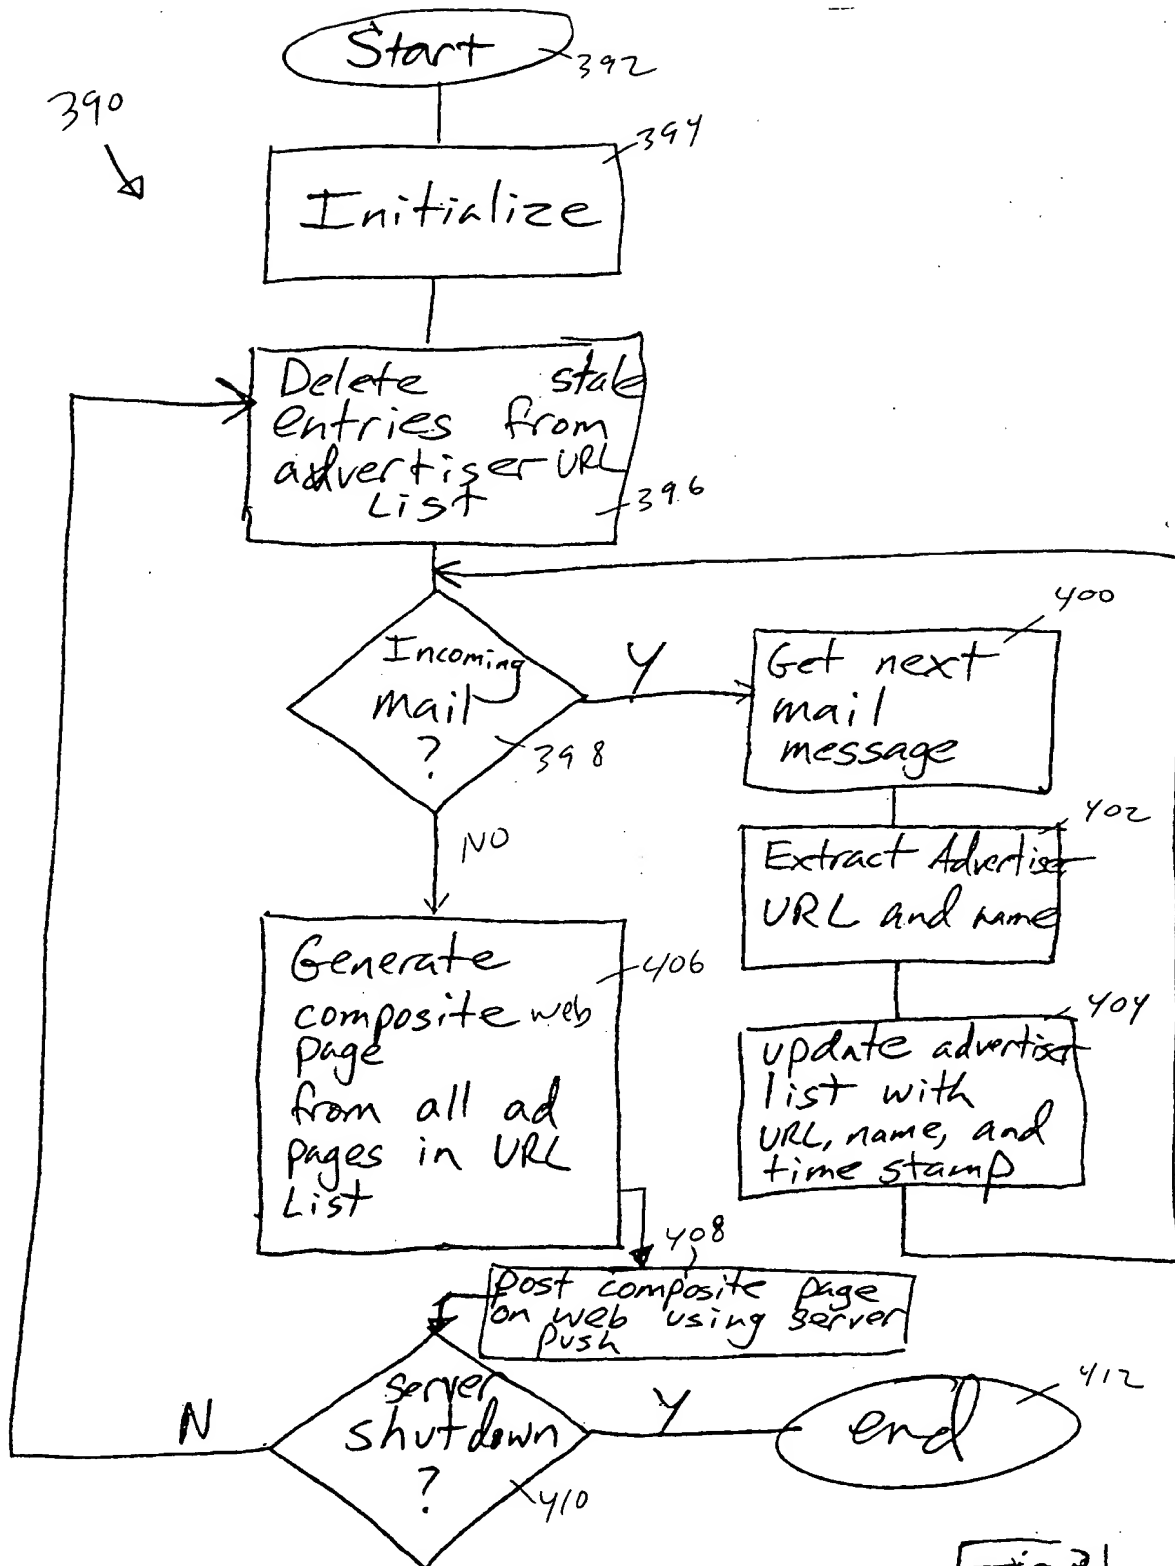 Start
392
390
394
Initialize
Delete stale
entries from
advertiser URL
List
396
400
Incoming
mail
?
398
Y
Get next
mail
message
402
Extract Advertiser
URL and name
NO
404
update advertiser
list with
URL, name, and
time stamp
Generate
composite web
page
from all ad
pages in URL
List
406
408
post composite page
on web using server
push
server
shutdown
?
410
N
Y
end
412